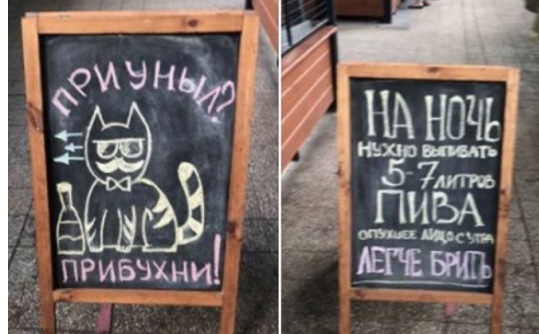 ПРИУНЫЛ?
ПРИБУХНИ!
НА НОЧЬ
НУЖНО ВЫПИВАТЬ
5-7 ЛИТРОВ
ПИВА
ОПУХШЕЕ ЛИЦО С УТРА
ЛЕГЧЕ БРИТЬ